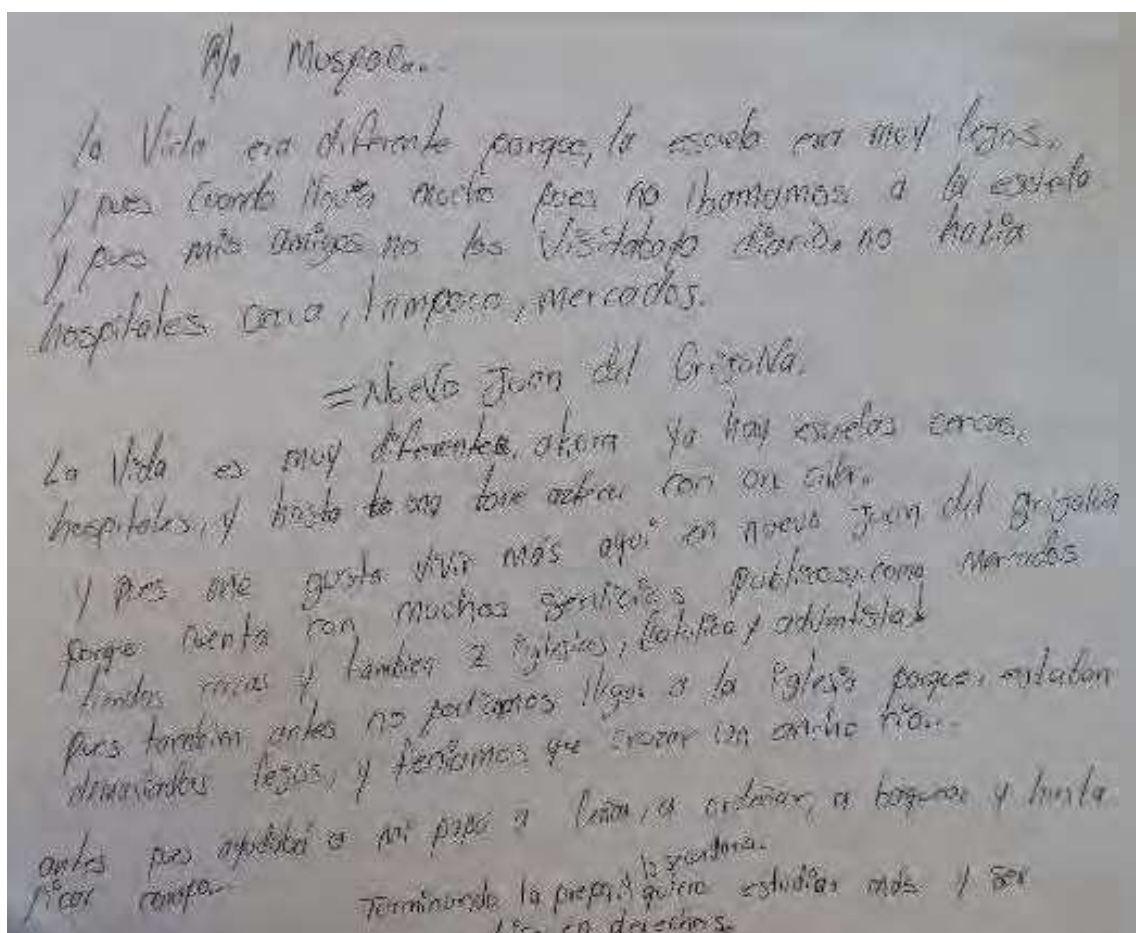 R/a Muspac..
la Vida era diferente porque, la escuela era muy legos..
y pues cuando llovia mucho pues no ibamamos a la escuela
y pues mis amigos no los visitabaja diario. no habia
hospitales cerca, tampoco, mercados.
= Nuevo Juan del Grigalva.
La Vida es muy diferentes, ahora ya hay escuelas cercas,
hospitales, y hasta una con un
y pues me gusta vivir más aquí en nuevo Juan del grigalva
porque cuenta con muchos servicios publicos, como mercados
tiendas cercas y tambien 2 iglesias, Catolica y adventistas
pues tambien antes no podiamos llegar a la iglesia porque, estaban
demasiados legos, y teniamos que crozar un ancho rio...
antes pues ayudaba a mi papa a leñar, a ordeñar, a baquear y hasta
picar
la secundaria.
Terminando la prepa. y quiero estudiar más y ser
Lic. en derechos.